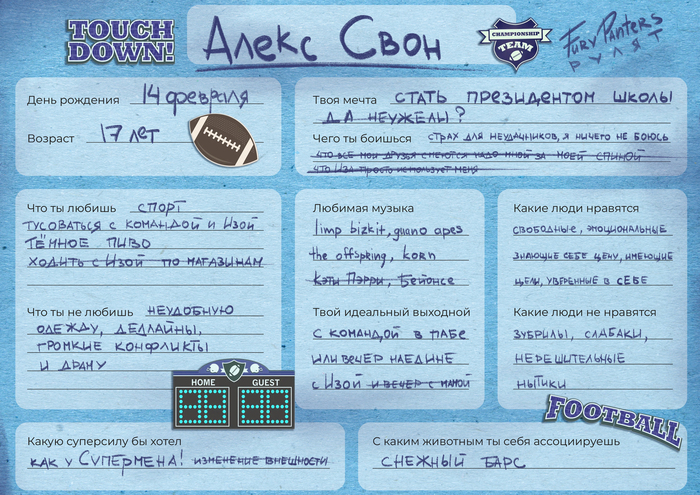 TOUCH DOWN!
Алекс Свон
CHAMPIONSHIP TEAM
Fury Panters
РУЛЯТ
День рождения 14 февраля
Возраст 17 лет
Твоя мечта СТАТЬ ПРЕЗИДЕНТОМ ШКОЛЫ
ДА НЕУЖЕЛЫ?
Чего ты боишься СТРАХ ДЛЯ НЕУДАЧНИКОВ, Я НИЧЕГО НЕ БОЮСЬ
ЧТО ВСЕ МОИ ДРУЗЬЯ СМЕЮТСЯ НАДО МНОЙ ЗА МОЕЙ СПИНОЙ
ЧТО ИЗА ПРОСТО ИСПОЛЬЗУЕТ МЕНЯ
Что ты любишь СПОРТ
ТУСОВАТЬСЯ С КОМАНДОЙ И ИЗОЙ
ТЁМНОЕ ПИВО
ХОДИТЬ С ИЗОЙ ПО МАГАЗИНАМ
Что ты не любишь НЕУДОБНУЮ
ОДЕЖДУ, ДЕДЛАЙНЫ,
ГРОМКИЕ КОНФЛИКТЫ
И ДРАМУ
Любимая музыка
limp bizkit, guano apes
the offspring, korn
КЭТИ ПЭРРИ, БЕЙОНСЕ
Твой идеальный выходной
С КОМАНДОЙ В ПАБЕ
ИЛИ ВЕЧЕР НАЕДИНЕ
С ИЗОЙ И ВЕЧЕР С МАМОЙ
Какие люди нравятся
СВОБОДНЫЕ, ЭМОЦИОНАЛЬНЫЕ
ЗНАЮЩИЕ СЕБЕ ЦЕНУ, ИМЕЮЩИЕ
ЦЕЛИ, УВЕРЕННЫЕ В СЕБЕ
Какие люди не нравятся
ЗУБРИЛЫ, СЛАБАКИ,
НЕРЕШИТЕЛЬНЫЕ
НЫТИКИ
HOME GUEST
FOOTBALL
Какую суперсилу бы хотел
КАК У СУПЕРМЕНА! ИЗМЕНЕНИЕ ВНЕШНОСТИ
С каким животным ты себя ассоциируешь
СНЕЖНЫЙ БАРС